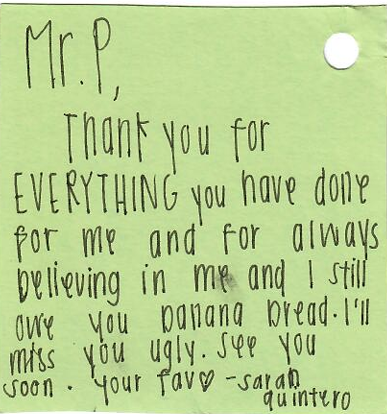 Mr. P,
Thank you for
EVERYTHING you have done
for me and for always
believing in me and I still
owe you banana bread. I'll
miss you ugly. See you
soon. your fav♡ -sarah
quintero